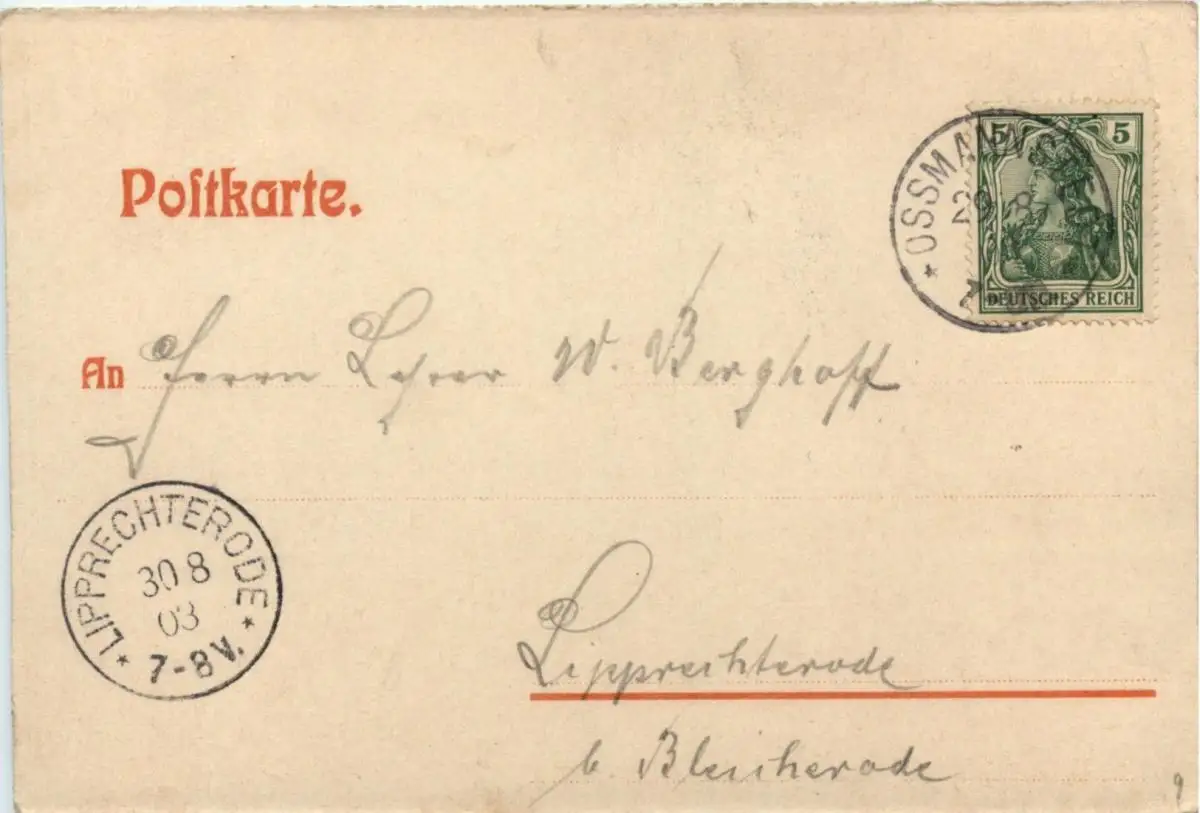 Postkarte.
5 5
OSSMANN
29 8
7
DEUTSCHES REICH
An Herrn Lehrer W. Berghoff
LIPPRECHTERODE
30 8
03
7-8 V.
Lipprechterode
b. Bleicherode
9